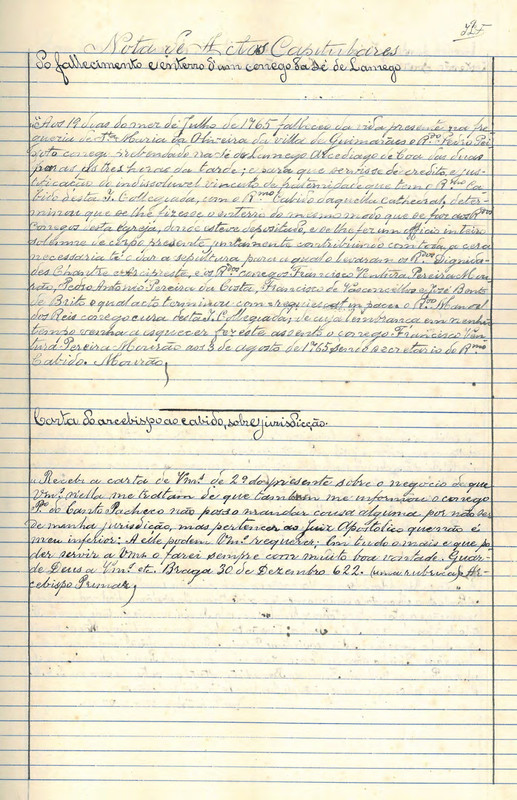 Nota de Actos Capitulares
Do fallecimento e enterro d'um conego da Sé de Lamego
"Aos 19 dias do mez de Julho de 1765 falleceu da vida presente na fre
guezia de Sta Maria da Oliveira da villa de Guimarães o Rdo Pedro
conego prebendado na Sé de Lamego Arcediago de Coa das duas
para as tres horas da tarde; e para que servisse de credito e jus
tificação do indissoluvel vinculo da fraternidade que tem o Rmo Ca
bido desta I. Collegiada, com o Rmo Cabido daquella Cathedral, deter
minou que se lhe fizesse o enterro do mesmo modo que se faz aos Rdos
Conegos desta Egreja, donde esteve depositado, e se lhe fez um officio inteiro
solemne de corpo presente juntamente contribuindo com toda a cera
necessaria té dar a sepultura para a qual o levaram os Rdos Dignida
des Chantre e Arcipreste, e os Rdos conegos Francisco Ventura Pereira Mou
rão, Pedro Antonio Pereira da Costa, Francisco de Vasconcellos e José Bento
de Brito o qual acto terminou com requiescat in pace o Rdo Manoel
dos Reis conego cura desta I. Collegiada; de cuja lembrança em nenhum
tempo venha a esquecer fez este assento o conego Francisco Ven
tura Pereira Mourão aos 3 de agosto de 1765 sendo secretario do Rmo
Cabido. Mourão
Carta do arcebispo ao cabido, sobre jurisdicção.
"Recebi a carta de Vmcs de 29 do presente sobre o negocio de que
Vmcs nella me tratam de que tambem me informou o conego
Po do Canto Pacheco não posso mandar cousa alguma por não ser
de minha jurisdição, mas pertencer ao Juiz Apostolico que não é
meu inferior: A elle podem Vmcs requerer; Em tudo o mais e que po
der servir a Vmcs o farei sempre com muito boa vontade. Guar
de Deus a Vmcs etc. Braga 30 de Dezembro 622. (uma rubrica) Ar
cebispo Primaz